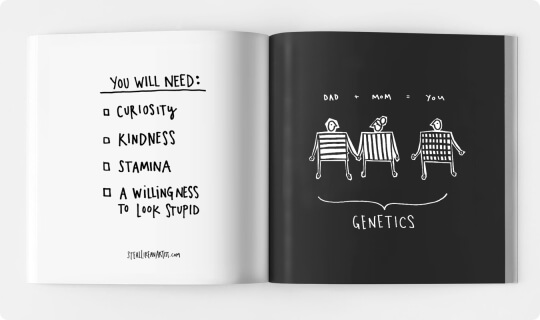 YOU WILL NEED:
CURIOSITY
KINDNESS
STAMINA
A WILLINGNESS
TO LOOK STUPID
STEALLIKEANARTIST.com
DAD + MOM = YOU
GENETICS